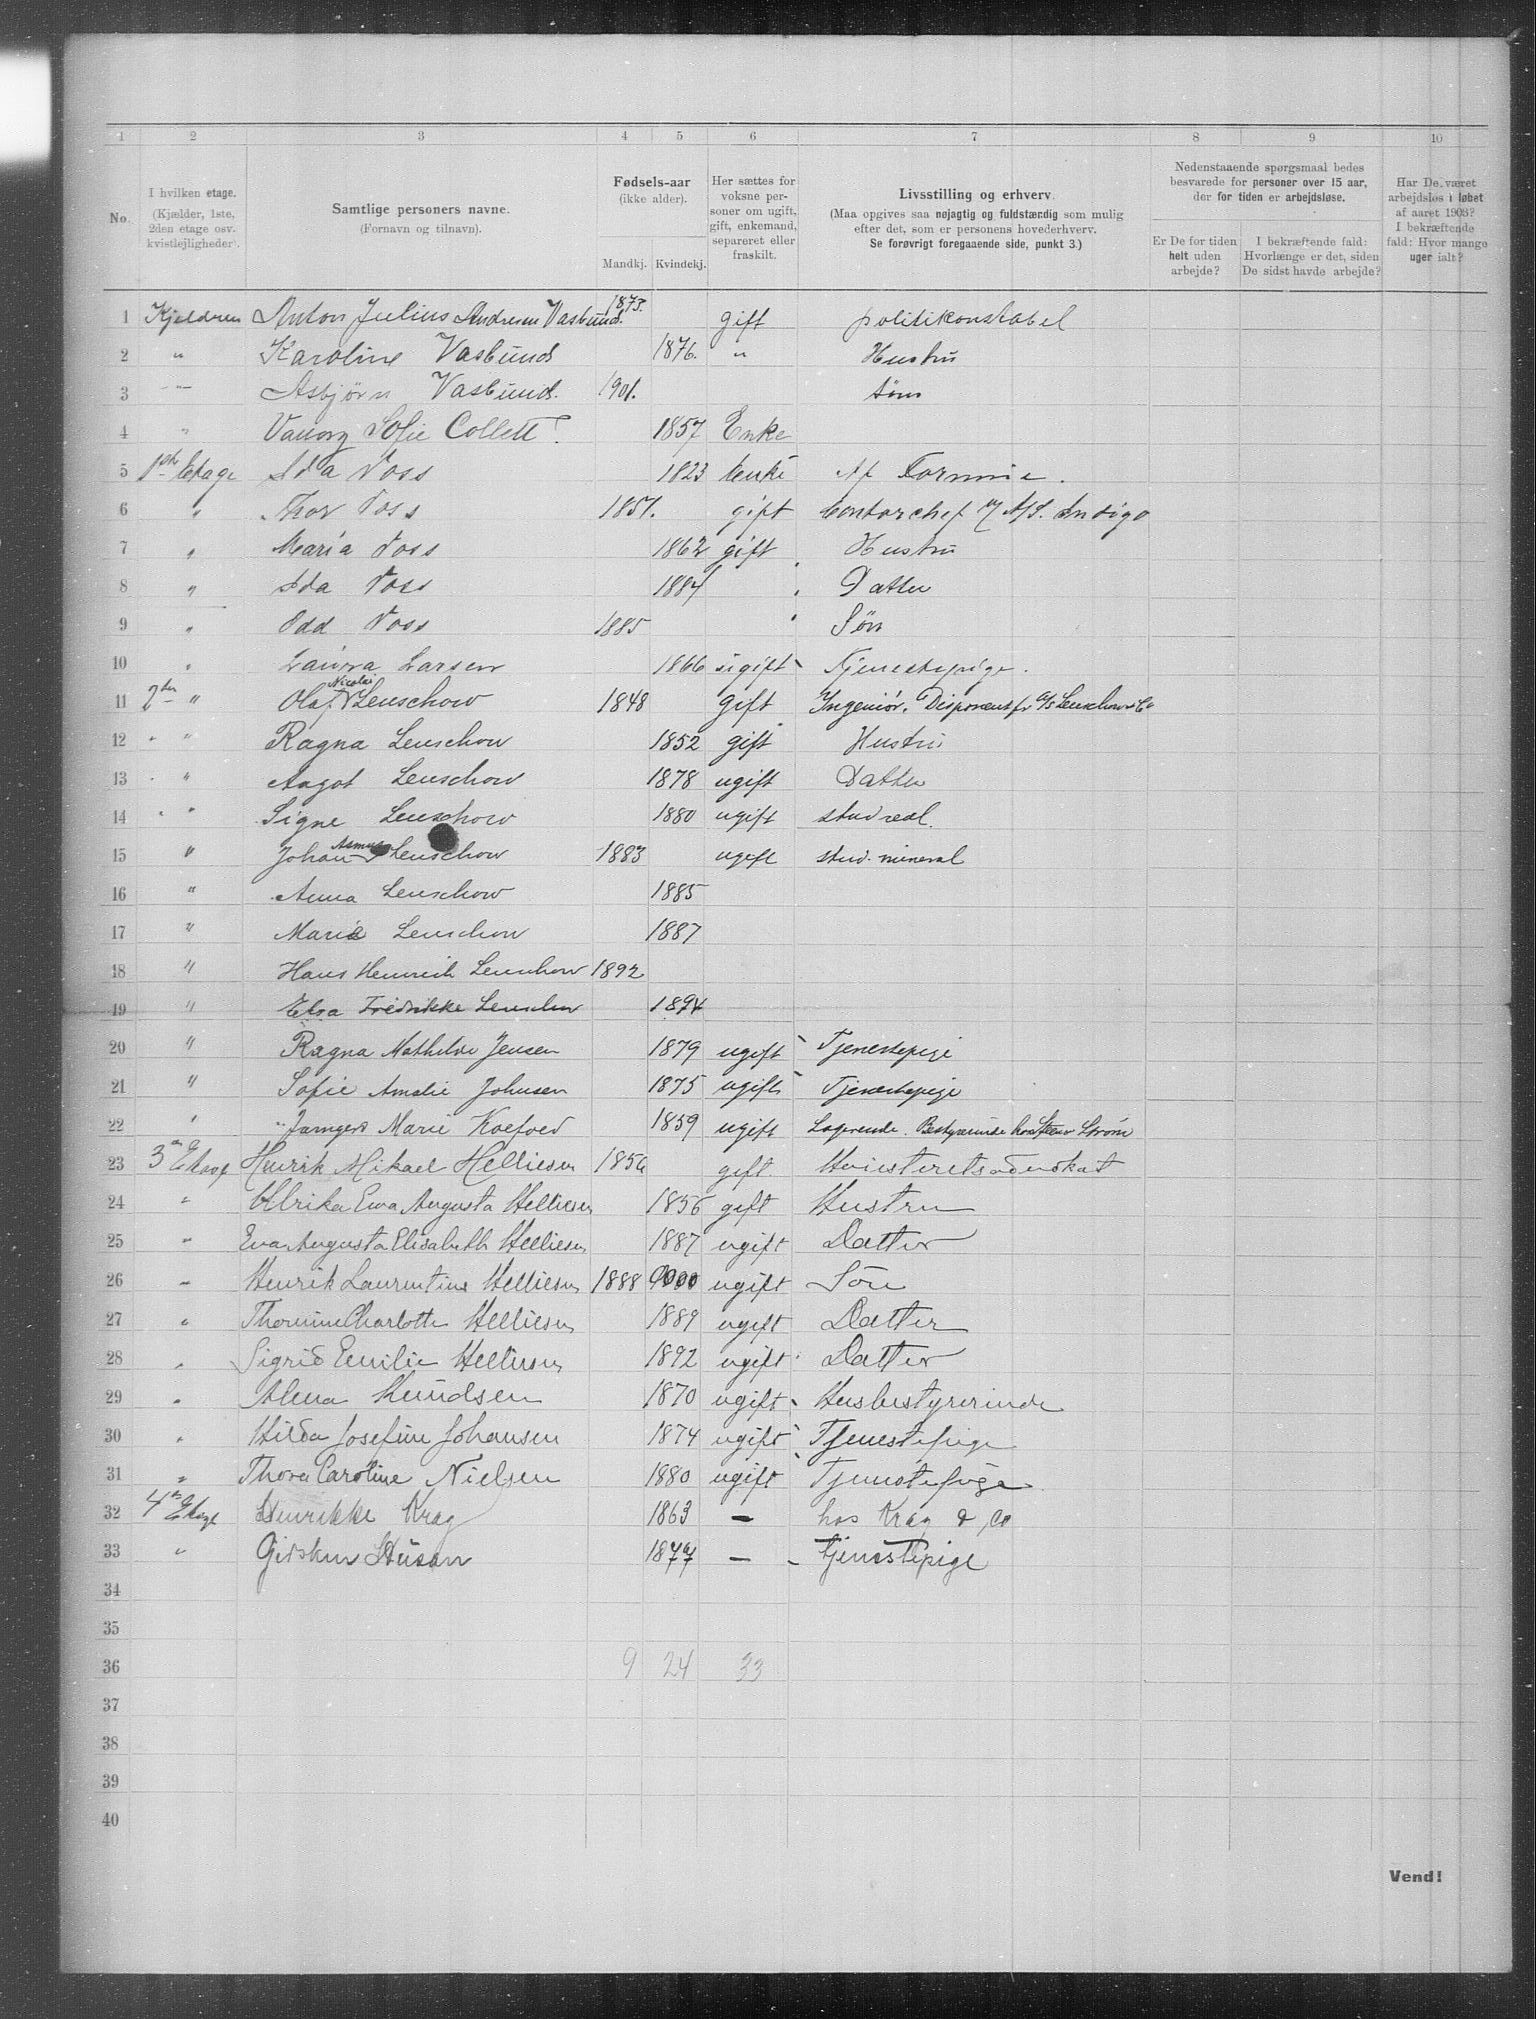 1 2 3 4 5 6 7 8 9 10
No.
I hvilken etage. (Kjælder, 1ste, 2den etage osv. kvistlejligheder).
Samtlige personers navne. (Fornavn og tilnavn).
Fødsels-aar (ikke alder). Mandkj. Kvindekj.
Her sættes for voksne personer om ugift, gift, enkemand, separeret eller fraskilt.
Livsstilling og erhverv. (Maa opgives saa nøjagtig og fuldstærdig som mulig efter det, som er personens hovederhverv. Se forøvrigt foregaaende side, punkt 3.)
Nedenstaaende spørgsmaal bedes besvarede for personer over 15 aar, der for tiden er arbejdsløse.
Er De for tiden helt uden arbejde?
I bekræftende fald: Hvorlænge er det, siden De sidst havde arbejde?
Har De været arbejdsløs i løbet af aaret 1903? I bekræftende fald: Hvor mange uger ialt?
1 Kjeldren Anton Julius Andresen Vasbund. 1873. gift politikonstabel
2 " Karoline Vasbund 1876. " Hustru
3 " Asbjørn Vasbund. 1901. søn
4 " Sofie Collett. 1857 Enke
5 1ste Etage Ida Voss 1823 Enke Af Formue.
6 " Thor Voss 1851. gift Contorchef v/ A/S. Indigo
7 " Maria Voss 1862 gift Hustru
8 " Ida Voss 1884 Datter
9 " Odd Voss 1885 Søn
10 " Laura Larsen 1866 ugift Tjenestepige.
11 2den " Olaf Nicolai Lenschow 1848 gift Ingeniør. Disponent fr A/S Lenschow & Co
12 " " Ragna Lenschow 1852 gift Hustru
13 " " Aagot Lenschow 1878 ugift Datter
14 " " Signe Lenschow 1880 ugift stud real.
15 " Johan Asmus Lenschow 1883 ugift stud. mineral
16 " Anna Lenschow 1885
17 " Marie Lenschow 1887
18 " Hans Henrich Lenschow 1892
19 " Elsa Fredrikke Lenschow 1894
20 " Ragna Mathilde Jensen 1879 ugift Tjenestepige
21 " Sofie Amalie Johnsen 1875 ugift Tjenestepige
22 " Marie Koefoed 1859 ugift Logerende. Bestyrerinde hos Steen Strøm
23 3die Etage Henrik Mikael Helliesen 1856 gift. Høiesteretsadvokat
24 " Ulrika Eva Augusta Helliesen 1856 gift Hustru
25 " Eva Augusta Elisabeth Helliesen 1887 ugift Datter
26 " Henrik Laurentius Helliesen 1888 ugift Søn
27 " Thomine Charlotte Helliesen 1889 ugift Datter
28 " Sigrid Emilie Helliesen 1892 ugift Datter
29 " Alma Knudsen 1870 ugift Husbestyrerinde
30 " Hilda Josefine Johansen 1874 ugift Tjenestepige
31 " Thora Caroline Nielsen 1880 ugift Tjenestepige
32 4de Etage Henrikke Krag 1863 — hos Krag & Co
33 " 1877 — tjenestepige
34
35
36 9 24 33
37
38
39
40
Vend!